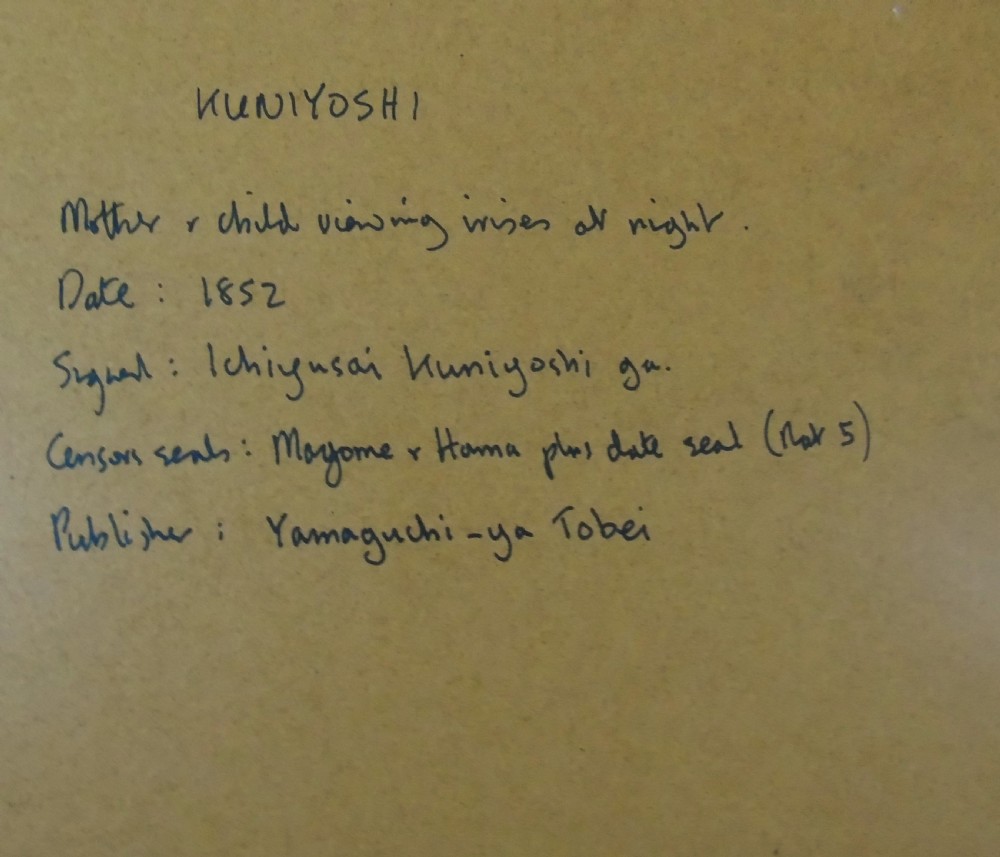 KUNIYOSHI
Mother & child viewing irises at night.
Date : 1852
Signed : Ichiyusai Kuniyoshi ga.
Censors seals : Magome & Hama plus date seal (Rat 5)
Publisher : Yamaguchi-ya Tobei